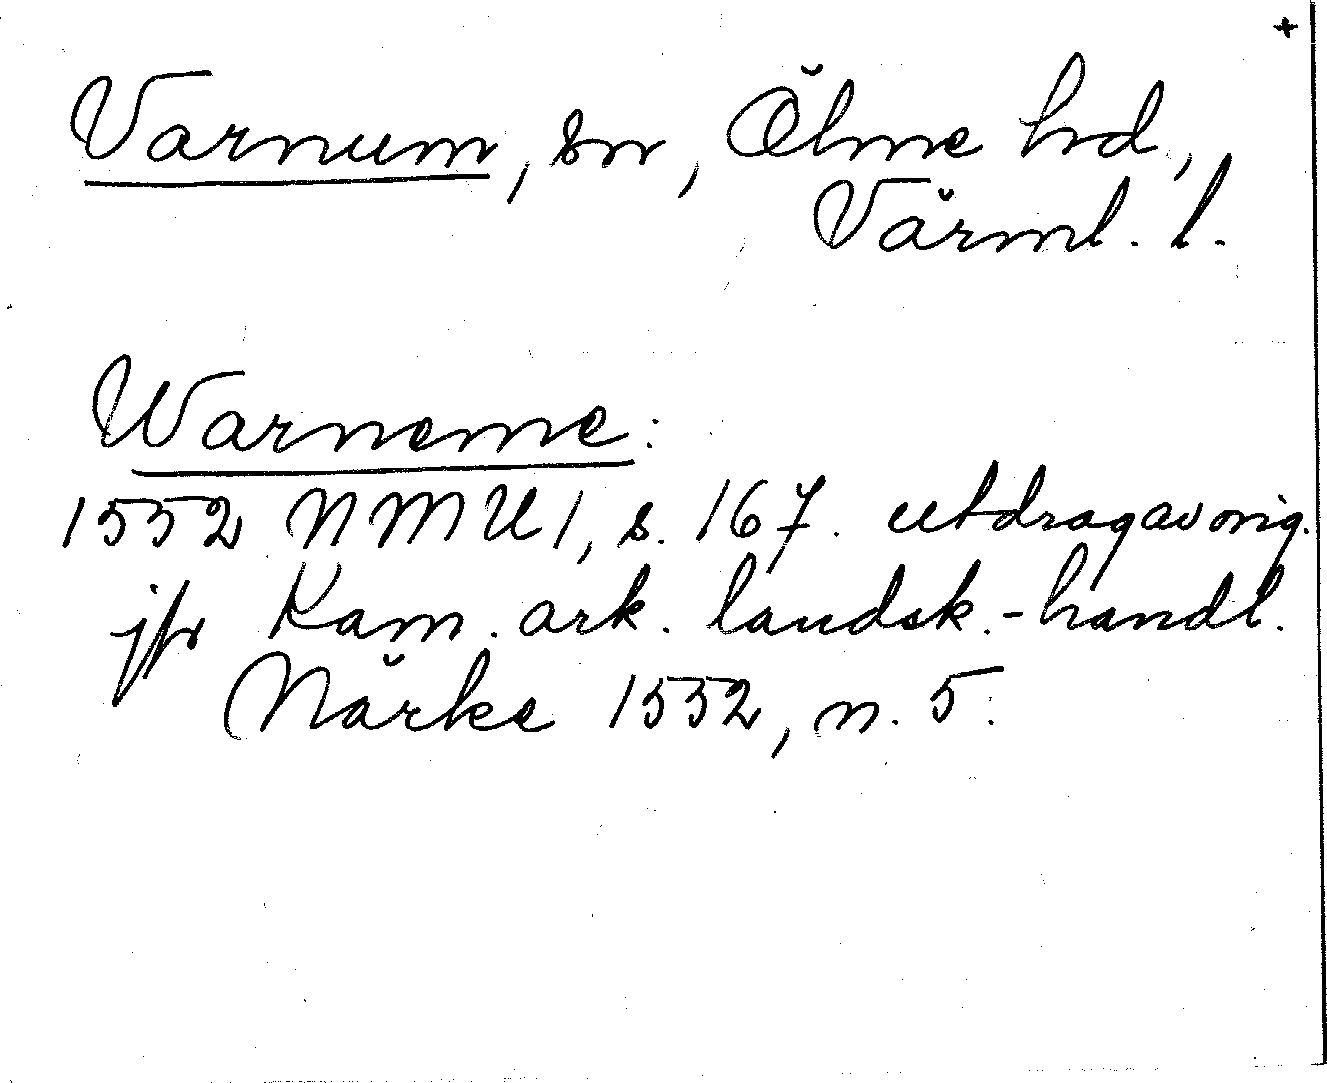 +
Varnum, sn, Ölme hrd,
Värml. l.
Warneme:
1552 NMU 1, s. 167. utdrag av orig.
jfr Kam. ark. landsk.-handl.
Närke 1552, n. 5.